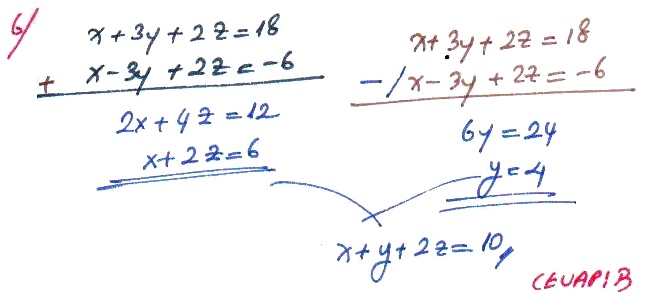 6/
x+3y+2z=18
+ x-3y+2z=-6
2x+4z=12
x+2z=6
x+3y+2z=18
-/x-3y+2z=-6
6y=24
y=4
x+y+2z=10,
CEVAP:B